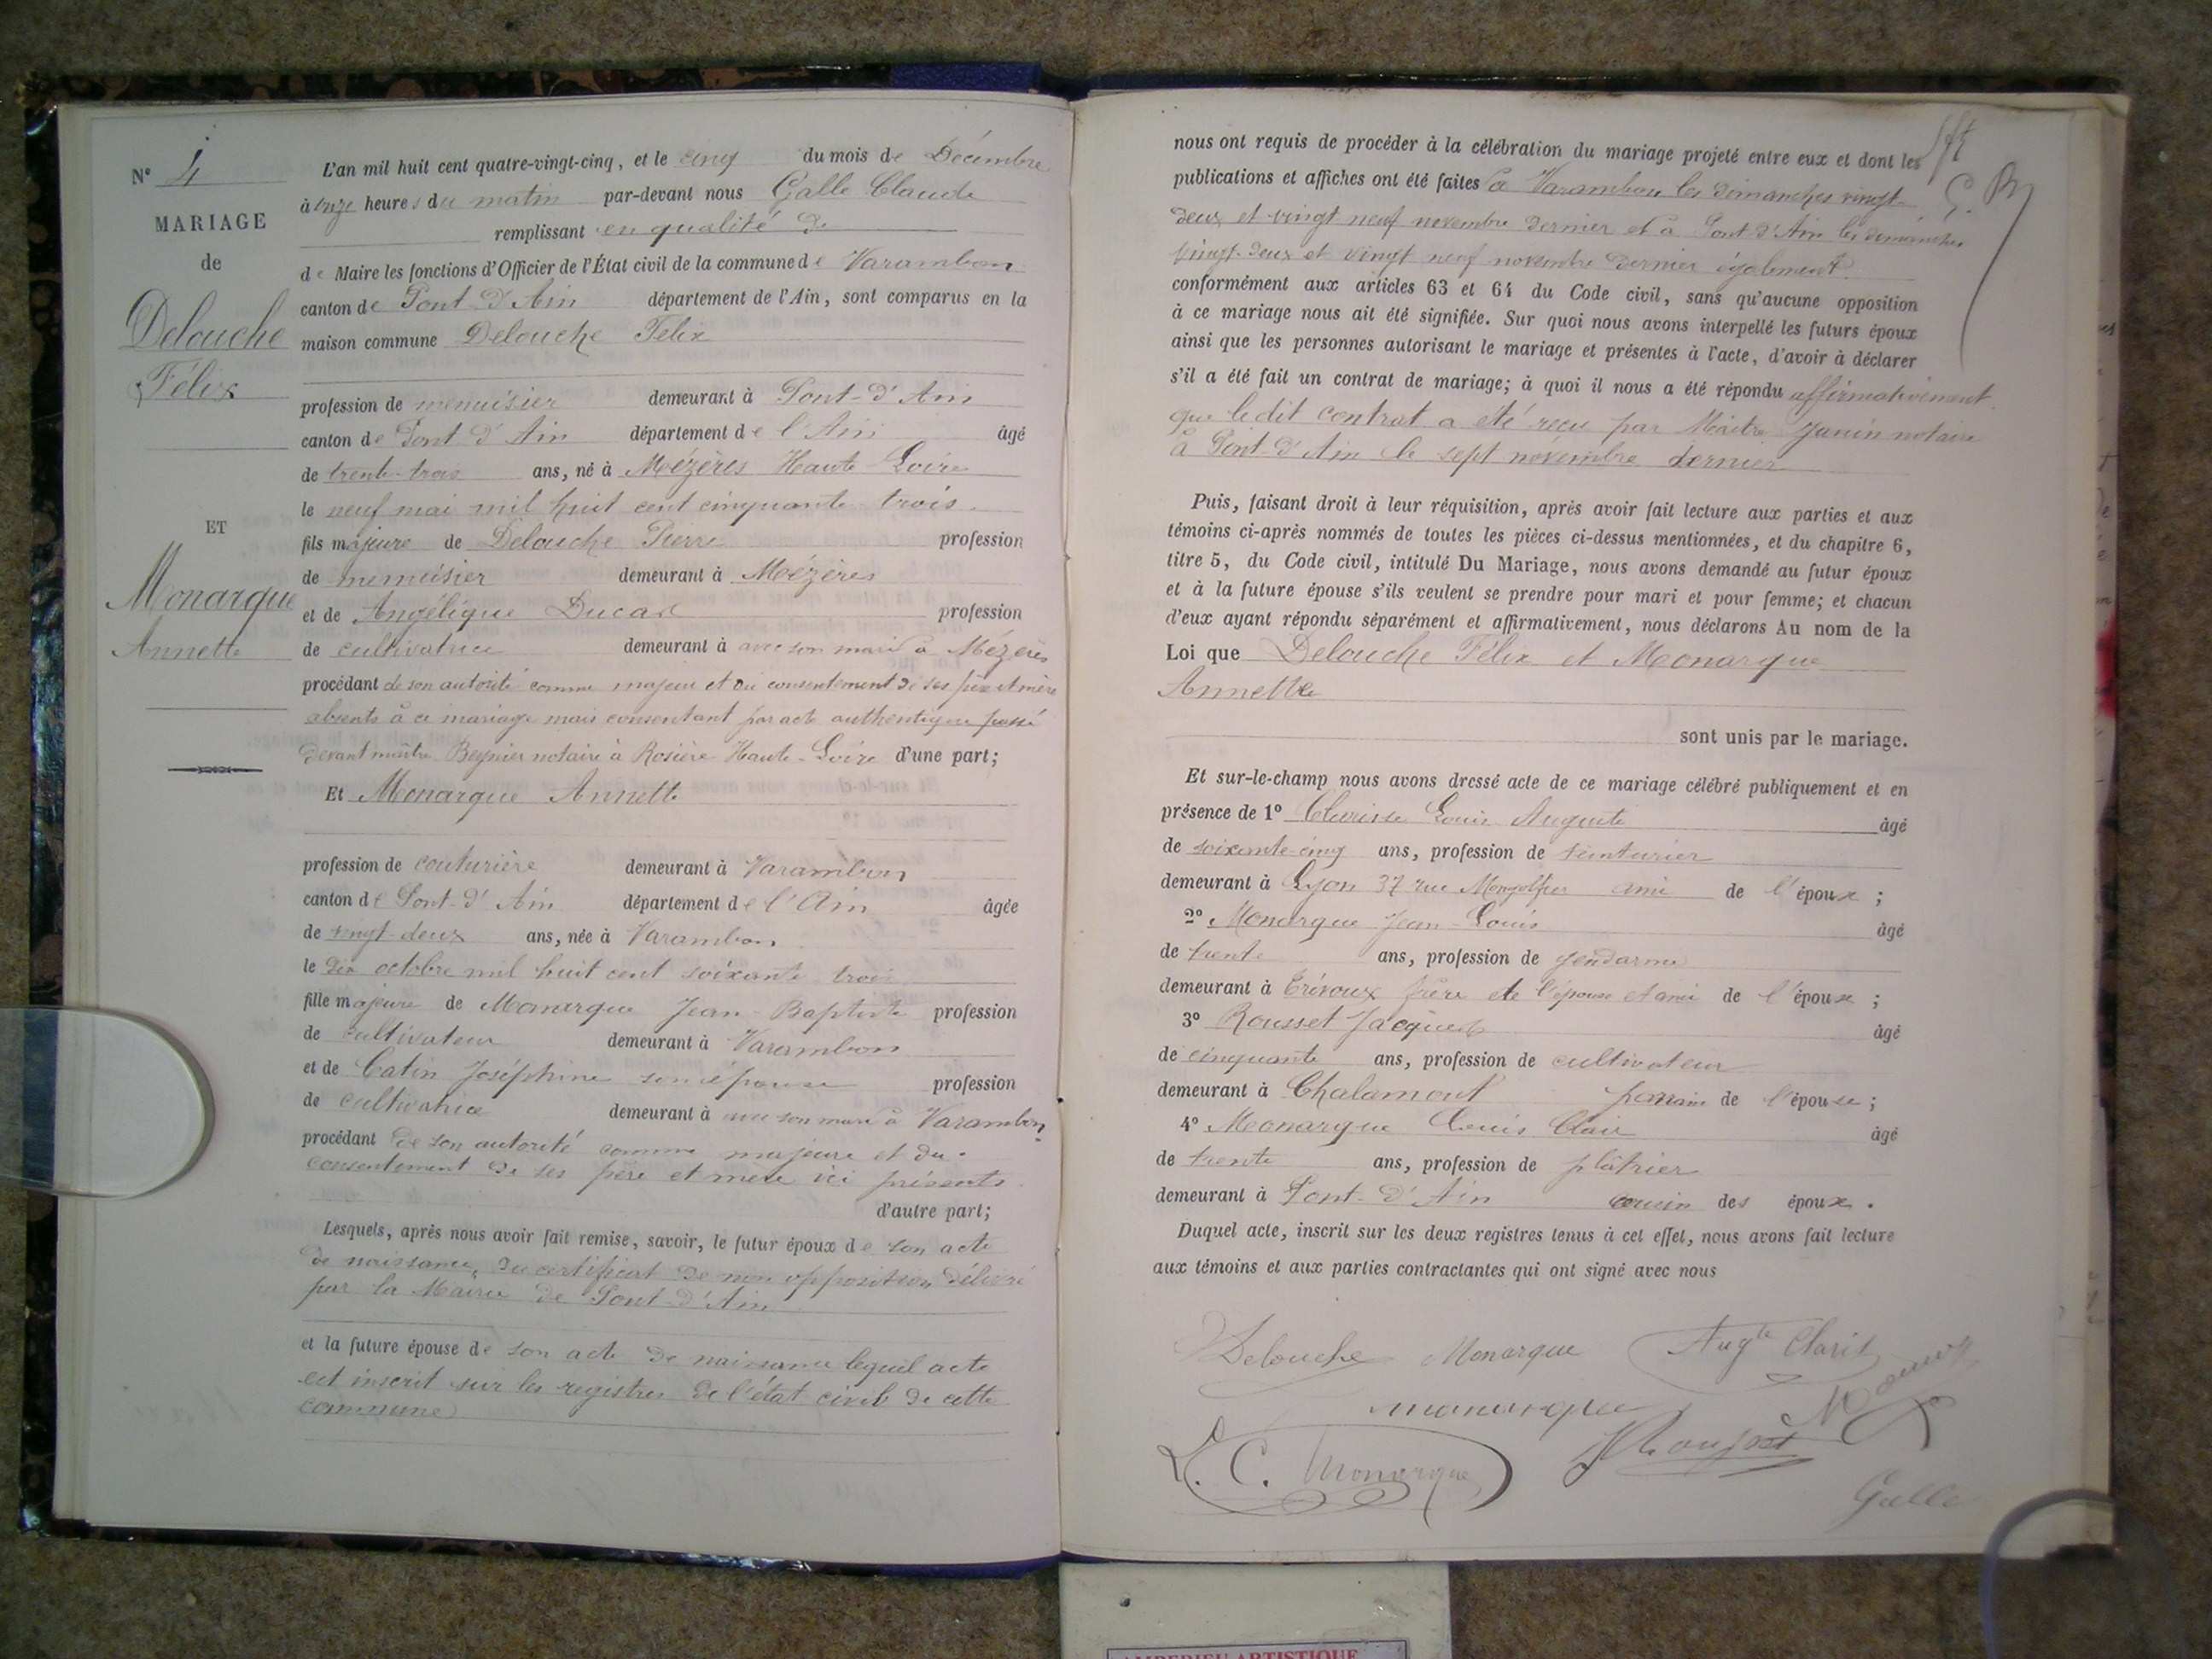 N° 4
MARIAGE
de
Delouche
Félix
ET
Monarque
Annette
L'an mil huit cent quatre-vingt-cinq, et le cinq du mois de Décembre
à onze heures du matin par-devant nous Galle Claude
remplissant en qualité de
de Maire les fonctions d'Officier de l'État civil de la commune de Varambon
canton de Pont-d'Ain département de l'Ain, sont comparus en la
maison commune Delouche Félix
profession de menuisier demeurant à Pont-d'Ain
canton de Pont d'Ain département de l'Ain âgé
de trente-trois ans, né à Mézères Haute-Loire
le neuf mai mil huit cent cinquante trois
fils majeure de Delouche Pierre profession
de menuisier demeurant à Mézères
et de Angélique profession
de cultivatrice demeurant à avec son mari à Mézères
procédant de son autorité comme majeur et du consentement de ses père et mère
absents à ce mariage mais consentant par acte authentique passé
devant maître notaire à Rosière Haute-Loire d'une part;
Et Monarque Annette
profession de couturière demeurant à Varambon
canton de Pont-d'Ain département de l'Ain âgée
de vingt-deux ans, née à Varambon
le dix octobre mil huit cent soixante trois
fille majeure de Monarque Jean-Baptiste profession
de cultivateur demeurant à Varambon
et de Catin Joséphine son épouse profession
de cultivatrice demeurant à avec son mari à Varambon
procédant de son autorité comme majeure et du
consentement de ses père et mère ici présents
d'autre part;
Lesquels, après nous avoir fait remise, savoir, le futur époux de son acte
de naissance, du certificat de non opposition délivré
par la Mairie de Pont-d'Ain
et la future épouse de son acte de naissance lequel acte
est inscrit sur les registres de l'état civil de cette
commune
nous ont requis de procéder à la célébration du mariage projeté entre eux et dont les
publications et affiches ont été faites à Varambon les dimanches vingt-
deux et vingt neuf novembre dernier et à Pont d'Ain les dimanches
vingt-deux et vingt neuf novembre dernier également
conformément aux articles 63 et 64 du Code civil, sans qu'aucune opposition
à ce mariage nous ait été signifiée. Sur quoi nous avons interpellé les futurs époux
ainsi que les personnes autorisant le mariage et présentes à l'acte, d'avoir à déclarer
s'il a été fait un contrat de mariage; à quoi il nous a été répondu affirmativement
que ledit contrat a été reçu par Maître Janin notaire
à Pont-d'Ain le sept novembre dernier
Puis, faisant droit à leur réquisition, après avoir fait lecture aux parties et aux
témoins ci-après nommés de toutes les pièces ci-dessus mentionnées, et du chapitre 6,
titre 5, du Code civil, intitulé Du Mariage, nous avons demandé au futur époux
et à la future épouse s'ils veulent se prendre pour mari et pour femme; et chacun
d'eux ayant répondu séparément et affirmativement, nous déclarons Au nom de la
Loi que Delouche Félix et Monarque
Annette
sont unis par le mariage.
Et sur-le-champ nous avons dressé acte de ce mariage célébré publiquement et en
présence de 1° Louis Auguste âgé
de soixante-cinq ans, profession de teinturier
demeurant à Lyon 37 rue Mongolfier ami de l'époux;
2° Monarque Jean-Louis âgé
de trente ans, profession de gendarme
demeurant à Trévoux frère de l'épouse et ami de l'époux;
3° Rousset Jacques âgé
de cinquante ans, profession de cultivateur
demeurant à Chalamont parrain de l'épouse;
4° Monarque Louis Clair âgé
de trente ans, profession de plâtrier
demeurant à Pont-d'Ain cousin des époux.
Duquel acte, inscrit sur les deux registres tenus à cet effet, nous avons fait lecture
aux témoins et aux parties contractantes qui ont signé avec nous
Delouche Monarque Augte Claris
monarque
L. C. Monarque
Galle
AMBERIEU ARTISTIQUE